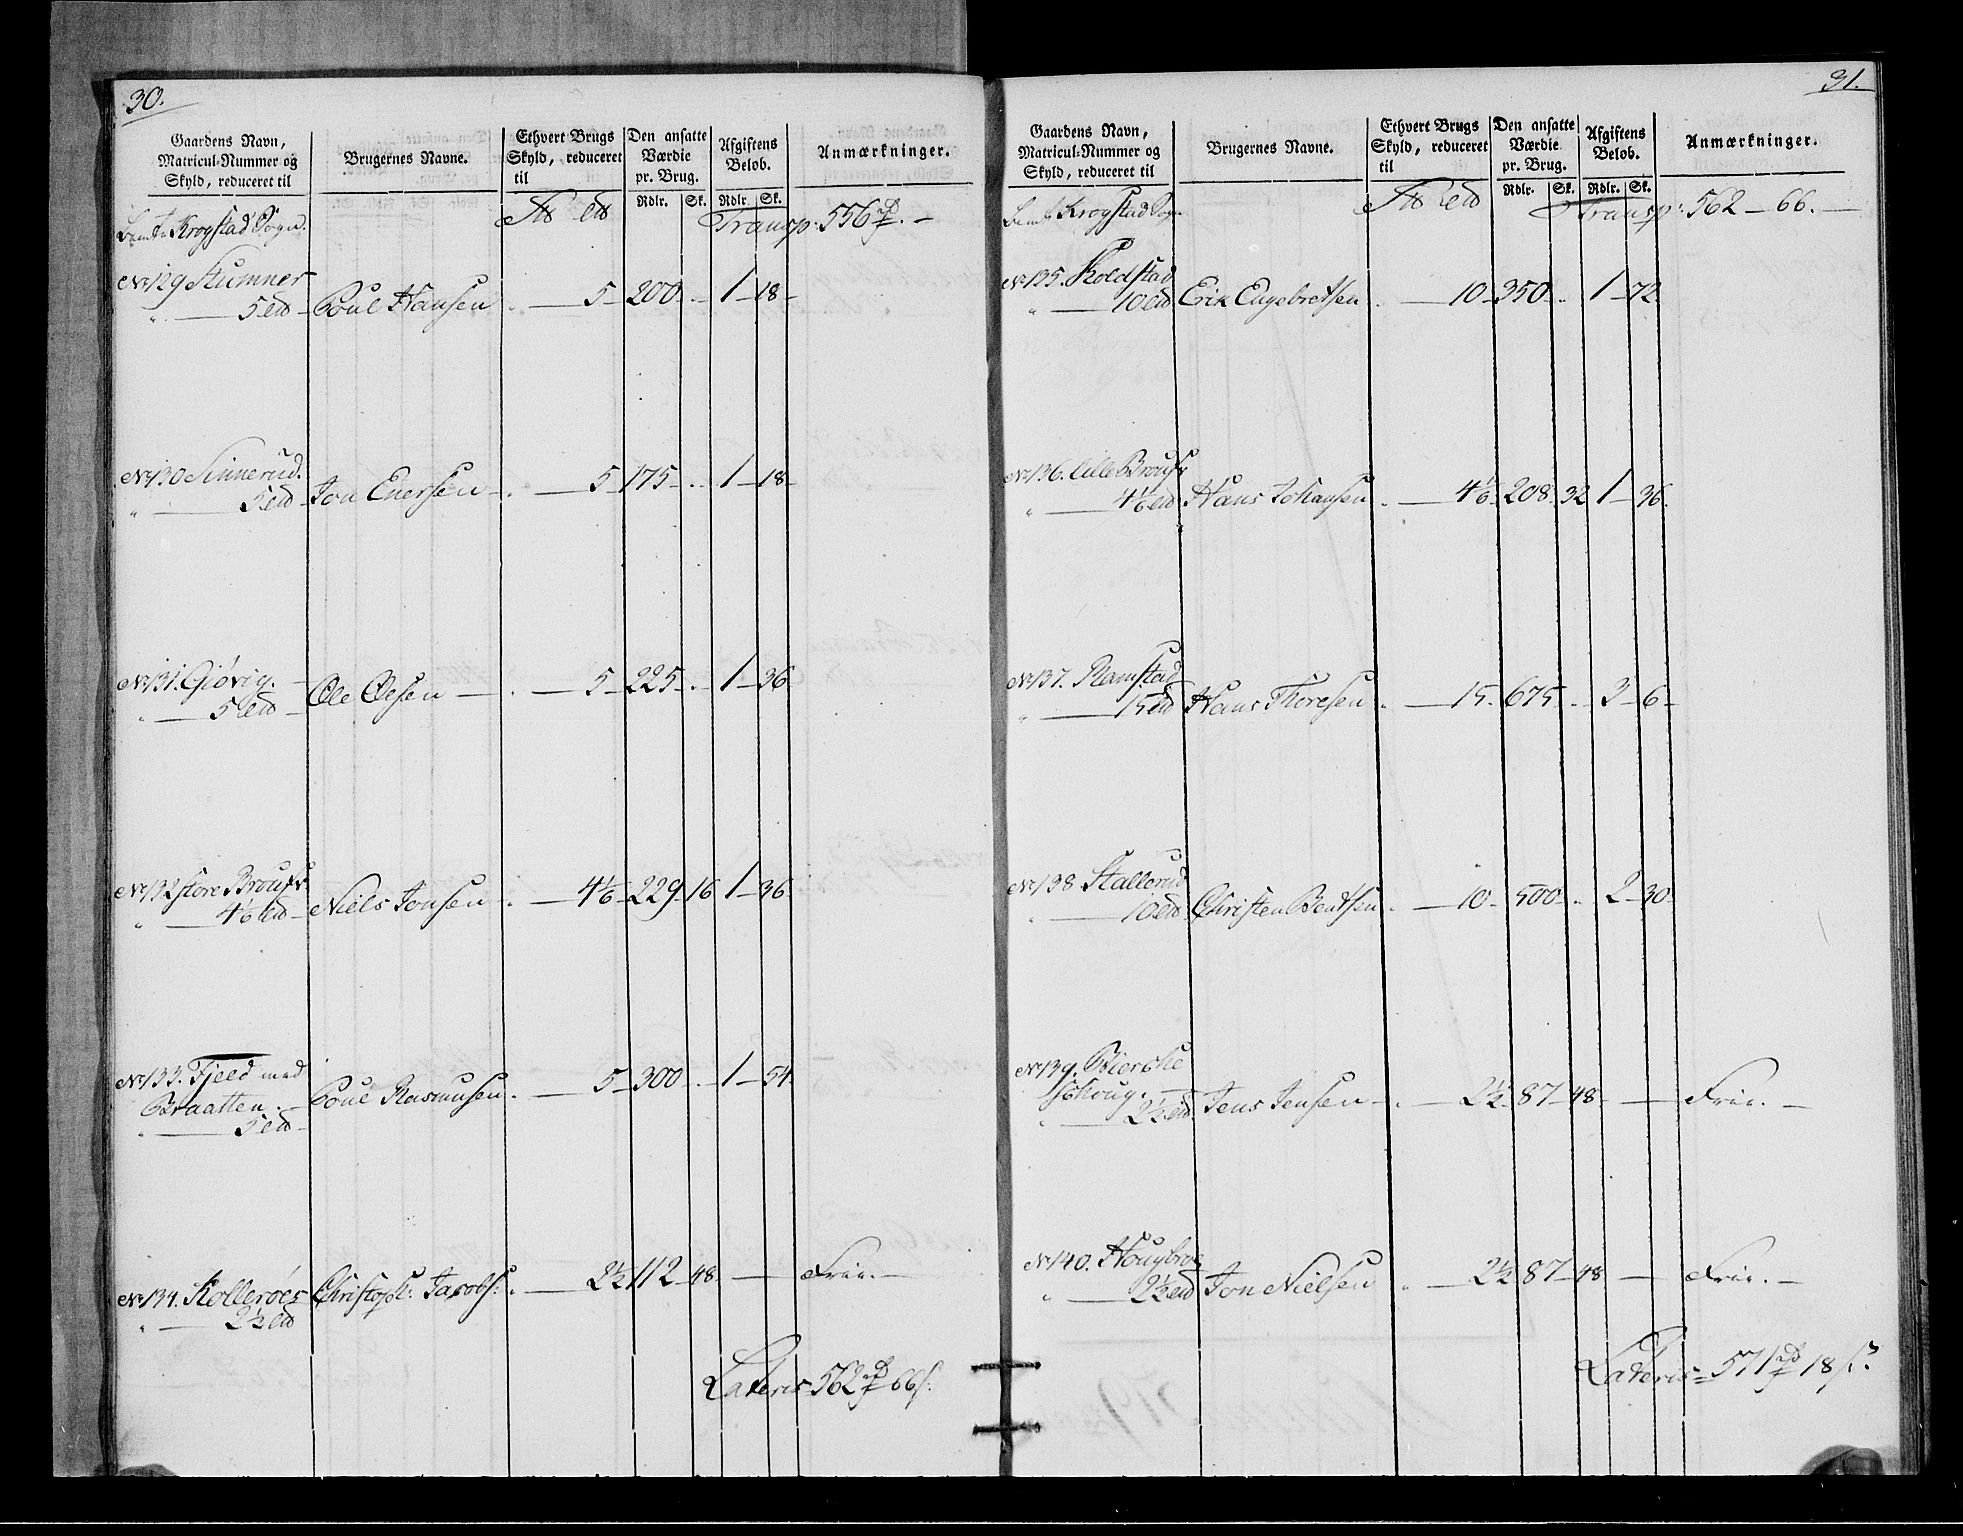 30.
Gaardens Navn, Matricul-Nummer og Skyld, reduceret til
Brugernes Navne.
Ethvert Brugs Skyld, reduceret til
Den ansatte Værdie pr. Brug.
Afgiftens Beløb.
Anmærkninger.
Rdlr. Sk. Rdlr. Sk.
Krogstad Sogn. Transp: 556 rd. –
No 129 Stumner
5 Ld – Poul Hansen . — 5 – 200 . . 1 – 18 –
No 130 Sinnerud.
5 Ld – Jon Enersen – . — 5 – 175 – . . 1 – 18 –
No 131. Giövig. –
5 Ld – Ole Olesen — . — 5 – 225 – . – 1 – 36
No 132 store Brousv
4 1/6 Ld – Niels Jonsen – . — 4 1/6 – 229 16 1 – 36
No 133. Fjeld med
Braatten. –
5 Ld – Poul Rasmusen . — 5 – 300 . . 1 – 54
No 134. Kolleröer
2 1/2 Ld Christoph: Jacobs: . — 2 1/2 112 – 48 — Frie. –
Lateris 562 rd 66 s:
31.
Gaardens Navn, Matricul-Nummer og Skyld, reduceret til
Brugernes Navne.
Ethvert Brugs Skyld, reduceret til
Den ansatte Værdie pr. Brug.
Afgiftens Beløb.
Anmærkninger.
Rdlr. Sk. Rdlr. Sk.
Krogstad Sogn Transp: 562 – 66. –
No 135. Skoldstad
10 Ld Erik Engebretsen . — 10 – 350 . . 1 – 72
No 136. Lille Brousv
4 1/6 Ld Hans Johansen . — 4 1/6 – 208 – 32 1 – 36.
No 137. Ramstad
15 Ld Hans Thoresen . — 15 – 675 . – 3 – 6 –
No 138 Stallerud
10 Ld Christen Bentsen . — 10 – 500 – . . 2 – 30
No 139. Bierske
skoug. –
2 1/2 Ld Jens Jensen – . — 2 1/2 – 87 – 48 – — Frie. –
No 140. Hougbroe
2 1/2 Ld Jon Nielsen . — 2 1/2 87 – 48 — Frie. –
Lateris = 571 rd 18 s: